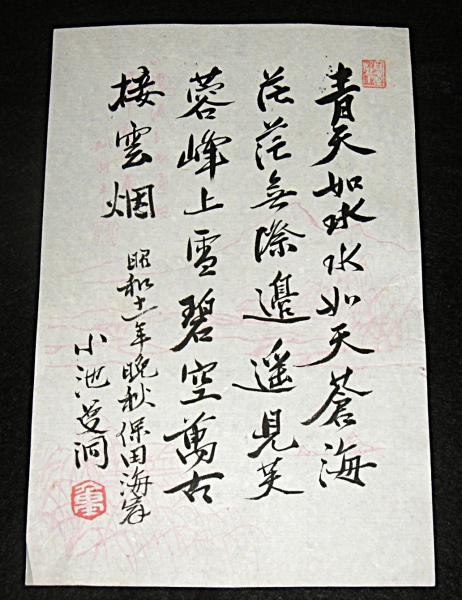 青天如水水如天蒼海
茫茫無際邉遥見芙
蓉峰上雪碧空萬古
接雲烟
昭和十一年晩秋保田海岸
小池曼洞